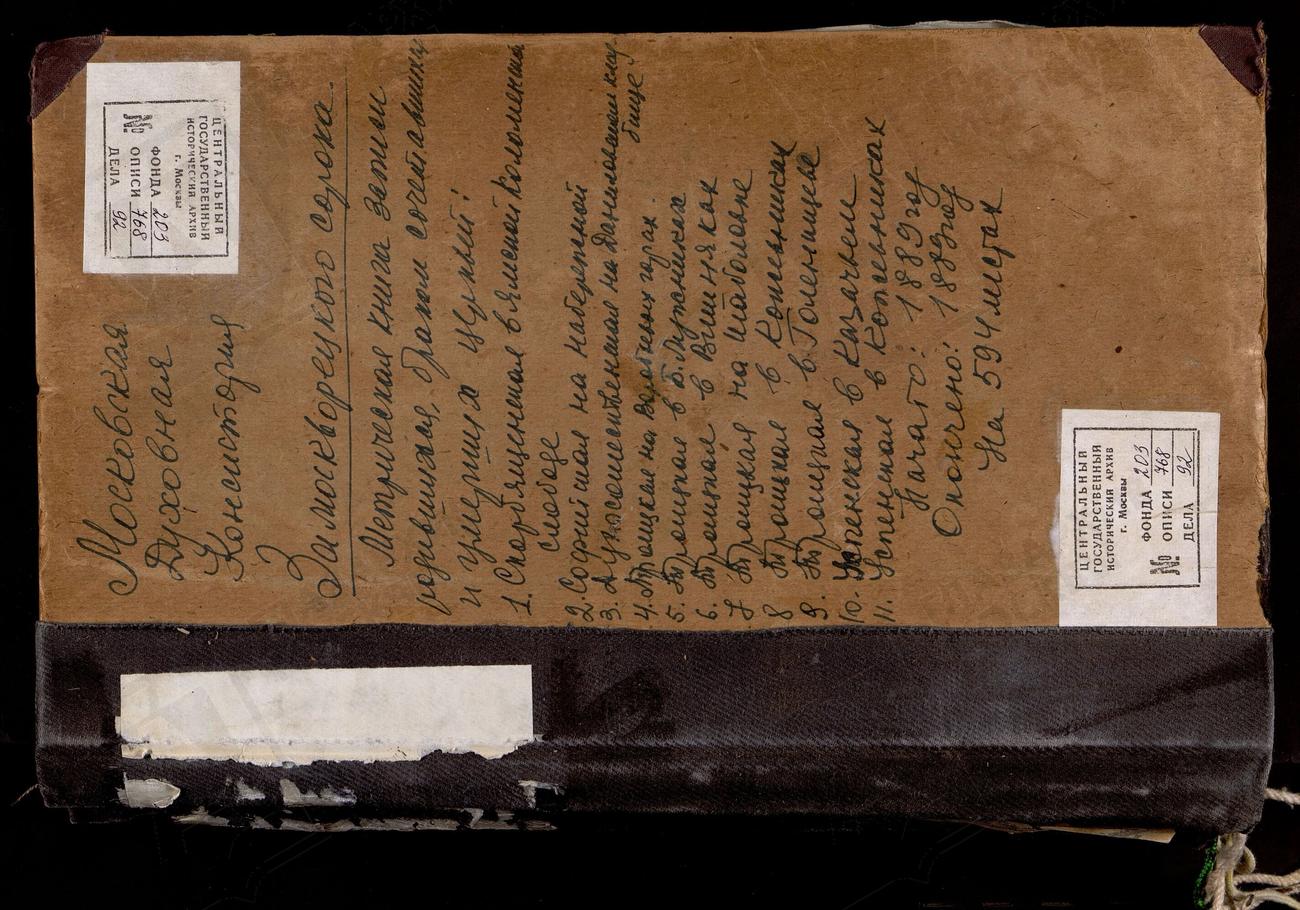 Московская
Духовная
Консистория
Замоскворецкого сорока.
Метрическая книга записи
родившихся, браком сочетавшихся
и умерших церквей:
1. Скорбященская в Ямской Коломенской
Слободе
2. Софийская на набережной
3. Духосошественская на Даниловском клад-
бище
4. Троицкая на Воробьевых горах.
5. Троицкая в Б. Лужниках
6. Троицкая в Вишняках
7 Троицкая на Шаболовке
8 Троицкая в Кожевниках
9. Троицкая в Голенищеве
10. Успенская в Казачьем
11. Успенская в Кожевниках
Начато: 1889 год
Окончено: 1889 год
На 594 листах
ЦЕНТРАЛЬНЫЙ
ГОСУДАРСТВЕННЫЙ
ИСТОРИЧЕСКИЙ АРХИВ
г. Москвы
ФОНДА 203
№ ОПИСИ 768
ДЕЛА 92
ЦЕНТРАЛЬНЫЙ
ГОСУДАРСТВЕННЫЙ
ИСТОРИЧЕСКИЙ АРХИВ
г. Москвы
ФОНДА 203
№ ОПИСИ 768
ДЕЛА 92